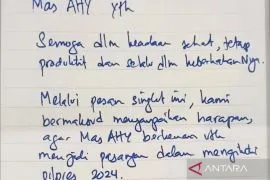 Mas AHY yth
Semoga dlm keadaan sehat, tetap
produktif dan selalu dlm keberkahan Nya.
Melalui pesan singkat ini, kami
bermaksud menyampaikan harapan,
agar Mas AHY berkenan utk
menjadi pasangan dalam mengikuti
pilpres 2024.
ANTARA